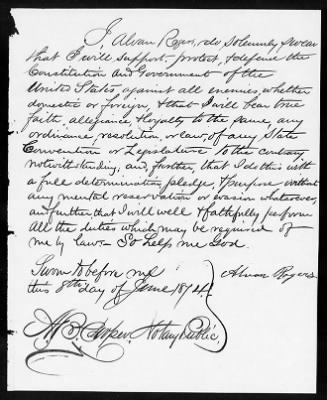 I, Alvan Rogers, do solemnly swear
that I will support, protect, & defend the
Constitution and Government of the
United States against all enemies, whether
domestic or foreign, & that I will bear true
faith, allegiance & loyalty to the same, any
ordinance, resolution, or law, of any State
Convention or Legislature to the contrary
notwithstanding; and, further, that I do this with
a full determination, pledge, & purpose without
any mental reservation or evasion whatsoever,
and further that I will well & faithfully perform
all the duties which may be required of
me by law. So help me God.
Sworn to before me
this 8th day of June 1874.
Alvan Rogers
Notary Public